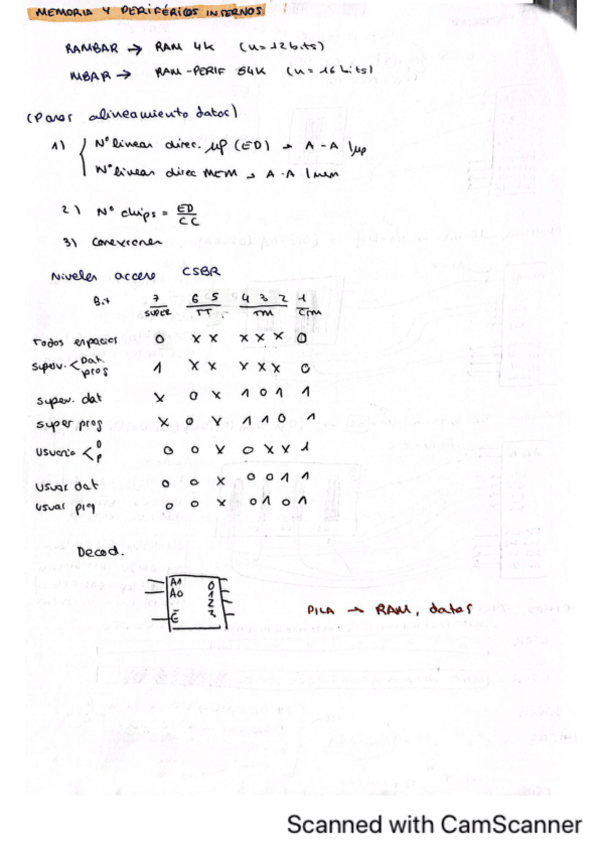 MEMORIA Y PERIFÉRICOS INTERNOS
RAMBAR → RAM 4K (n=12bits)
MBAR → RAM-PERIF 64K (n=16 bits)
(Paras alineamiento datos)
1) { Nº lineas direc. μP (ED) → A-A|μp
Nº lineas direc MEM → A-A|mem
2) Nº chips = ED/CC
3) Conexiones
Niveles acceso CSBR
Bit 7 6 5 4 3 2 1
SUPER TT TM CTM
Todos espacios 0 x x x x x 0
Superv. < Dat. prog 1 x x x x x 0
Superv. dat x 0 x 1 0 1 1
Super prog x 0 x 1 1 0 1
Usuario < D P 0 0 x 0 x x 1
Usuar dat 0 0 x 0 0 1 1
Usuar prg 0 0 x 0 1 0 1
Decod.
A1 0
A0 1
2
E 3
PILA → RAM, datos
Scanned with CamScanner